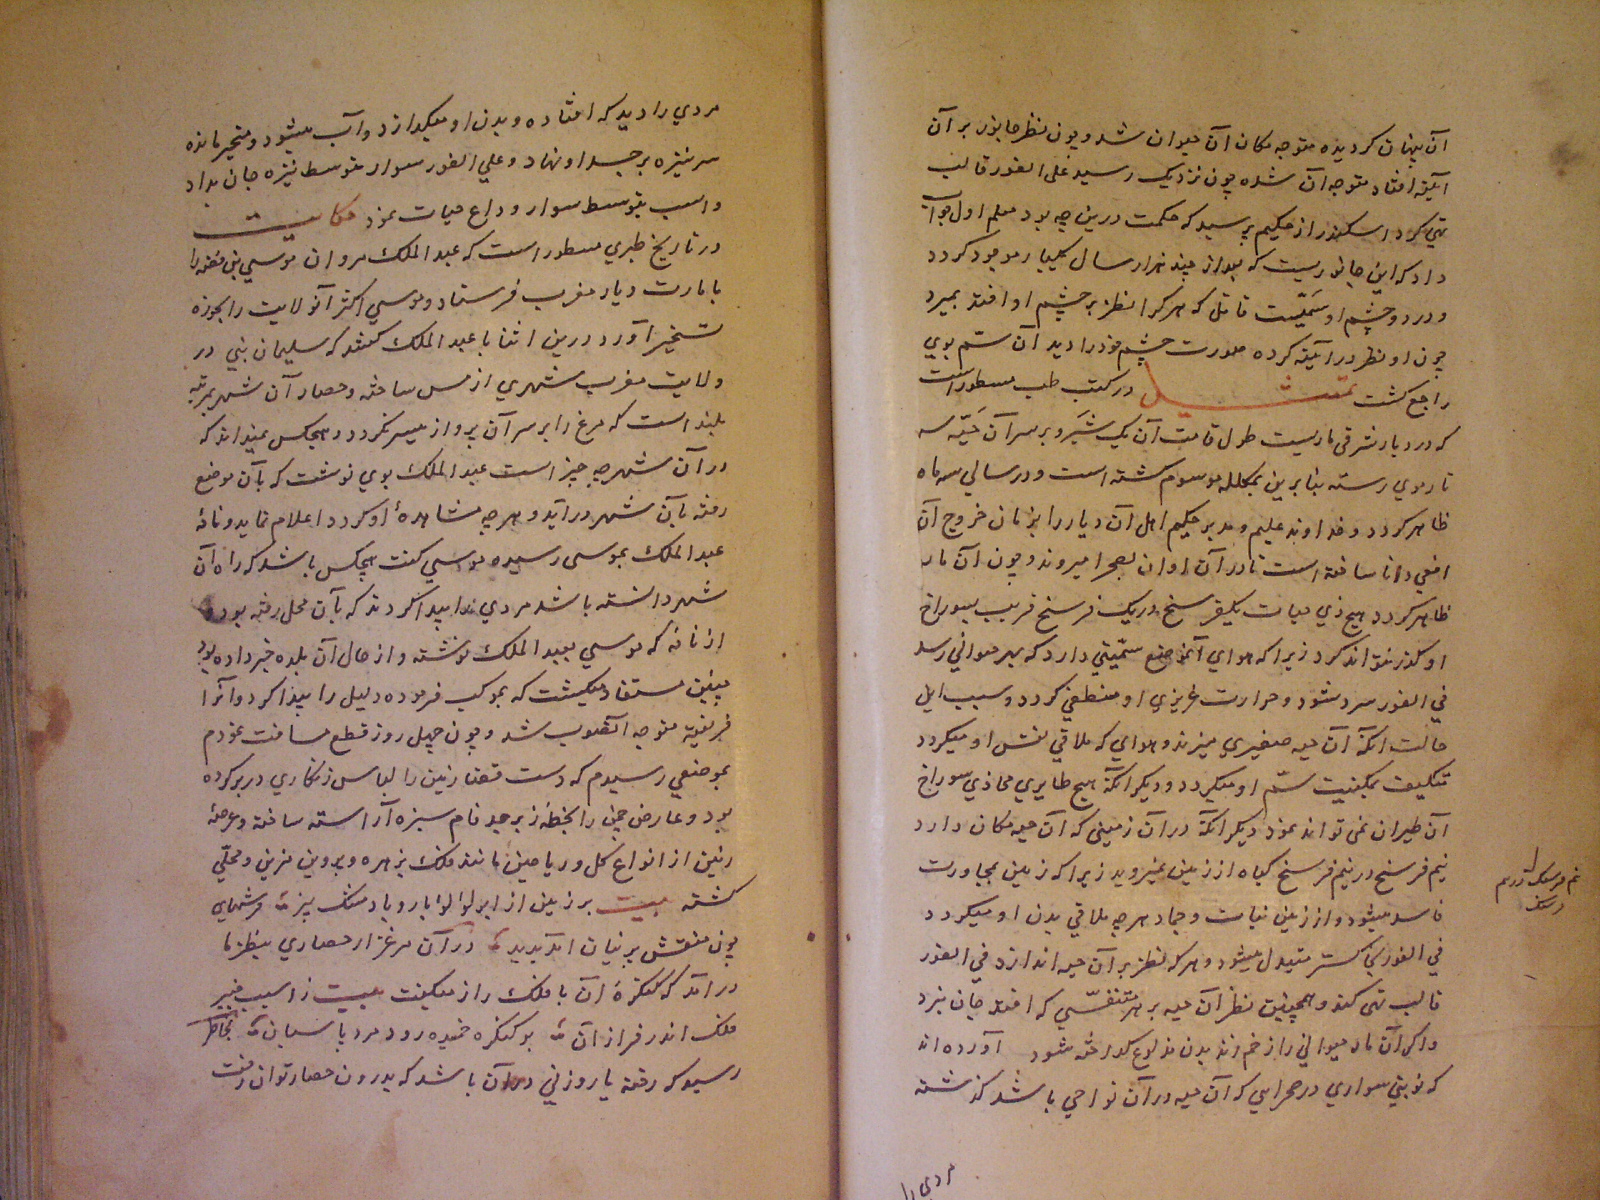 آن پنهان کردیده متوجه مکان آن حیوان شد و چون نظر جانور بر آن
آینه افتاد متوجه آن شده چون نزدیک رسید علی الفور قالب
تهی کرد اسکندر از حکیم پرسید که حکمت درین چه بود معلم اول جواب
داد که این جانوریست که بعد از چند هزار سال یکبار موجود کردد
و در دو چشم او سَمّیّت قاتل که هر کرا نظر بر چشم او افتد بمیرد
چون او نظر در آینه کرده صورت چشم خود را دید آن سم بوی
راجع کشت تمثیل در کتب طب مسطور است
که در دیار شرقی ماریست طول قامت آن یک شَبر و بر سر آن حَیّه سه
تار موی رسته بنابرین بمکلله موسوم کشته است و در سالی سه ماه
ظاهر کردد و خداوند علیم و مدبر حکیم اهل آن دیار را بزمان خروج آن
افعی دانا ساخته است تا در آن اوان بصحرا میروند و چون آن مار
ظاهر کردد هیچ ذی حیات یکفرسخ در یک فرسخ قریب بسوراخ
او کذر نتواند کرد زیرا که هوای آنموضع سمّیتی دارد که بهر حیوانی رسد
فی الفور سرد شود و حرارت غریزی او منطفی کردد و سبب این
حالت آنکه آن حیه صفیری میزند و هوای که ملاقی نفس او میکردد
تکیف بکیفیت سم او میکیرد و دیکر آنکه هیچ طایری محاذی سوراخ
آن طیران نمی تواند نمود دیکر آنکه در آن زمینی که آن حیه مکان دارد
نیم فرسخ در نیم فرسخ کیاه از زمین نمیروید زیرا که زمین بمجاورت
فاسد میشود و از زمین نبات و جماد هر چه ملاقی بدن او میکردد
فی الفور بخاکستر متبدل میشود و هر که نظر بر آن حیه اندازد فی الفور
قالب تهی کند و همچنین نظر آن حیه بر هر متنفّسی که افتد جان نبرد
و اکر آن مار حیوانی را زخم زند بدن ملدوغ کداخته شود آورده اند
که نوبتی سواری در صحرایی که آن حیه در آن نواحی باشد کذشته
نیم فرسنک در نیم
فرسنک
مردی را
مردی را دید که افتاده و بدن او میکدازد و آب میشود و متحیر مانده
سر نیزه بر جسد او نهاد و علی الفور سوار بتوسط نیزه جان بداد
و اسب بتوسط سوار وداع حیات نمود حکایت
در تاریخ طبری مسطور است که عبد الملک مروان موسی بن نصیر را
بامارت دیار مغرب فرستاد و موسی اکثر آنولایت را بحوزه
تسخیر آورد درین اثنا با عبد الملک کفتند که سلیمان نبی در
ولایت مغرب شهری از مس ساخته و حصار آن شهر بمرتبه
بلند است که مرغ را بر سر آن پرواز میسر نکردد و هیچکس نمیداند که
در آن شهر چه چیز است عبد الملک بوی نوشت که بآن موضع
رفته بآن شهر درآید و هر چه مشاهدهٔ او کردد اعلام نماید و نامهٔ
عبد الملک بموسی رسیده موسی کفت هیچکس باشد که راه آن
شهر دانسته باشد مردی پیدا کردند که بآن محل رفته بود
از نامه که موسی بعبد الملک نوشته و از حال آن بلده خبر داده بود
چنین مستفاد میکشت که بموجب فرموده دلیل را پیدا کرد و آنرا
متوجه آنصوب شد و چون چهل روز قطع مسافت نمودم
بموضعی رسیدم که دست قضا زمین را لباس زنکاری در بر کرده
بود و عارض چمن را بخطهٔ زبرجد فام سبزه آراسته ساخته و عرصهٔ
زمین از انواع کل و ریاحین مانند فلک بزهره و پروین مزین و محلّی
کشته بیت بر زمین از ابر لولو بار و باد مشک بیز فرشهای
چون منقش پرنیان آمد پدید در آن مرغزار حصاری بنظر ما
درآمد که کنکرهٔ آن با فلک راز میکفت بیت ز آسیب
فلک اندر فراز آن بر کنکره خمیده رود مرد پاسبان بخاطر
رسید که رخنه یا روزنی در آن باشد که بدرون حصار توان رفت